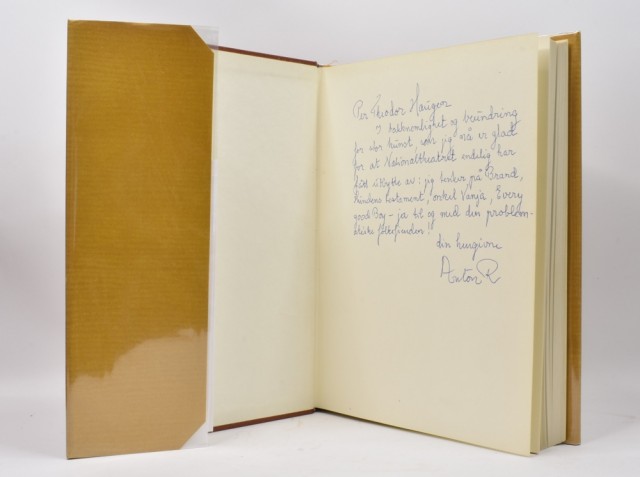 Per Theodor Haugen
I takknemlighet og beundring
for stor kunst, som jeg nå er glad
for at Nationaltheatret endelig har
fått utbytte av: jeg tenker på Brand,
testament, onkel Vanja, Every
good Boy – ja til og med din problem-
tiske folkefienden!
din hengivne
Anton R